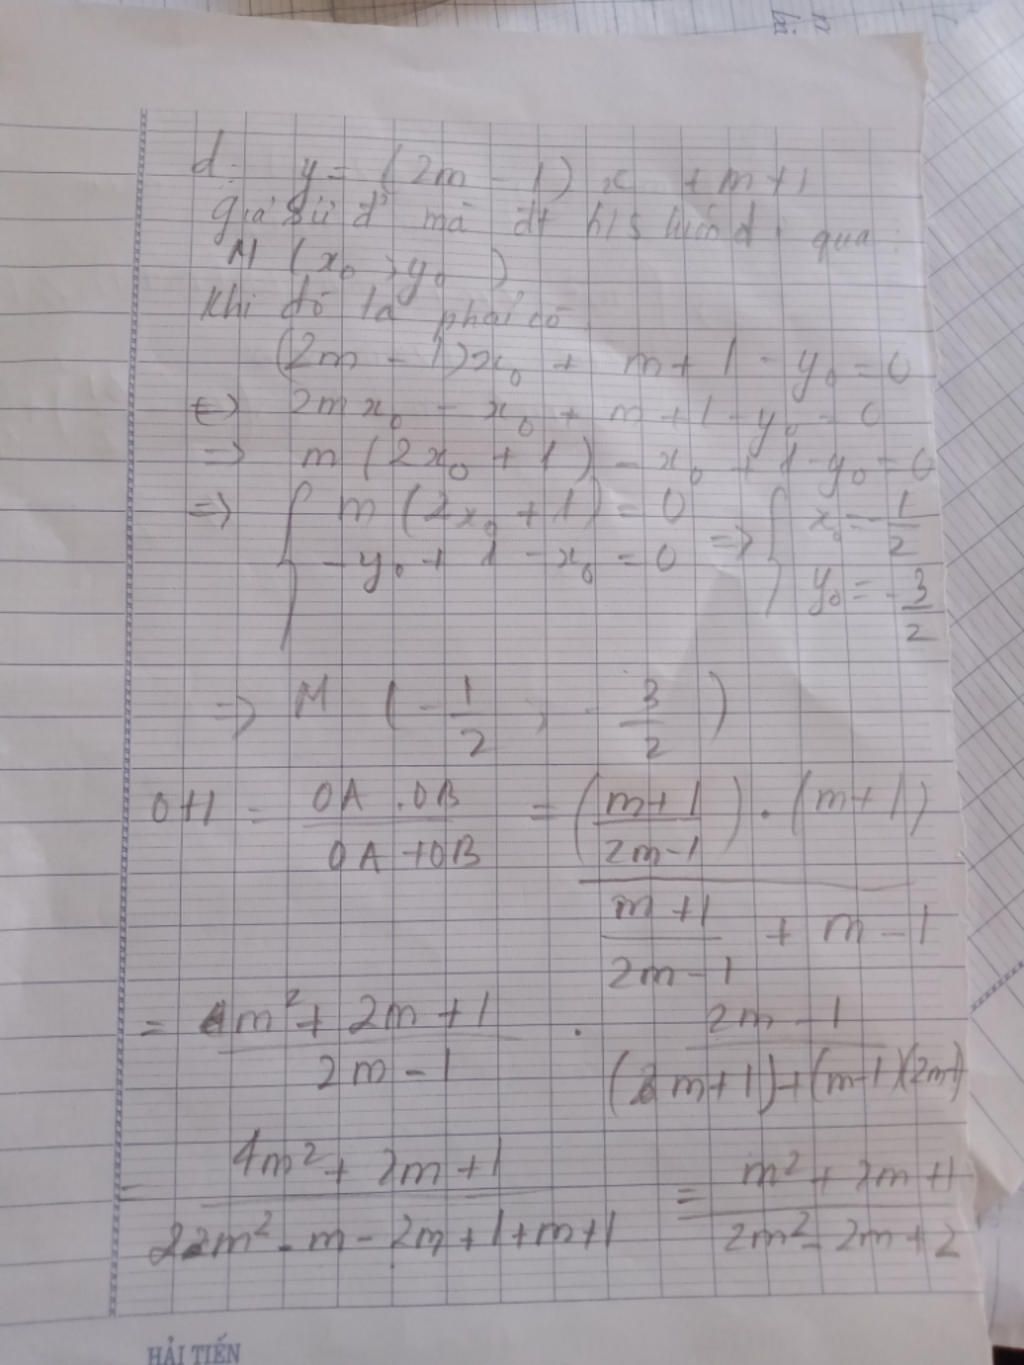 d: y = (2m - 1) x + m + 1
giả sử đ² mà đt h/s luôn đi qua:
M (x₀; y₀)
Khi đó ta phải có
(2m - 1)x₀ + m + 1 - y₀ = 0
<=> 2mx₀ - x₀ + m + 1 - y₀ = 0
=> m (2x₀ + 1) - x₀ + 1 - y₀ = 0
=> { m (2x₀ + 1) = 0 => { x₀ = -1/2
-y₀ + 1 - x₀ = 0 y₀ = -3/2
=> M (-1/2 ; -3/2)
OH = (OA . OB)/(OA + OB) = (((m+1)/(2m-1)) . (m+1))/((m+1)/(2m-1) + m - 1)
= (m² + 2m + 1)/(2m - 1) . (2m - 1)/((m+1) + (m-1)(2m-1))
= (4m² + 2m + 1)/(2m² - m - 2m + 1 + m + 1) = (m² + 2m + 1)/(2m² - 2m + 2)
HẢI TIẾN